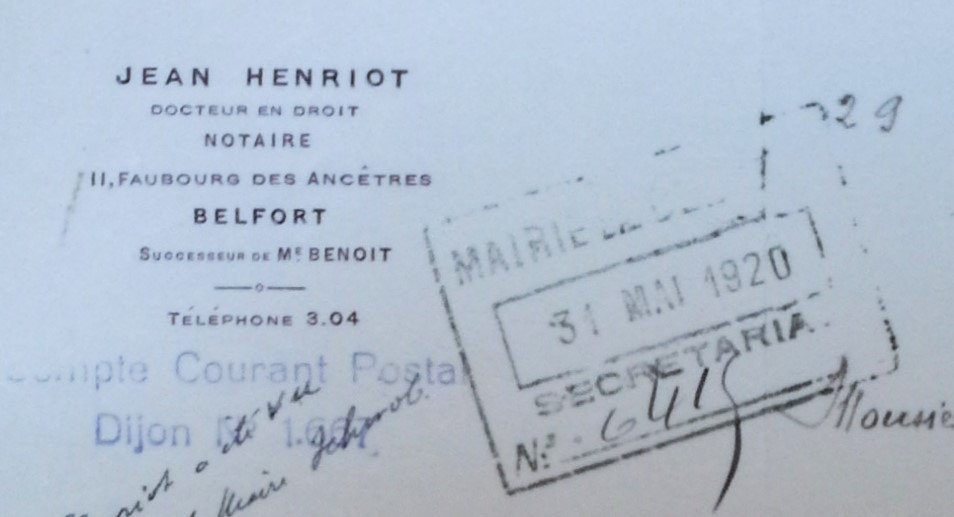 JEAN HENRIOT
DOCTEUR EN DROIT
NOTAIRE
11, FAUBOURG DES ANCÊTRES
BELFORT
SUCCESSEUR DE Mᴱ BENOIT
TÉLÉPHONE 3.04
Compte Courant Postal
Dijon Nº 1.667
29
MAIRIE DE
31 MAI 1920
SECRETARIA
Nº 641
a été vu
Maire
Mousie